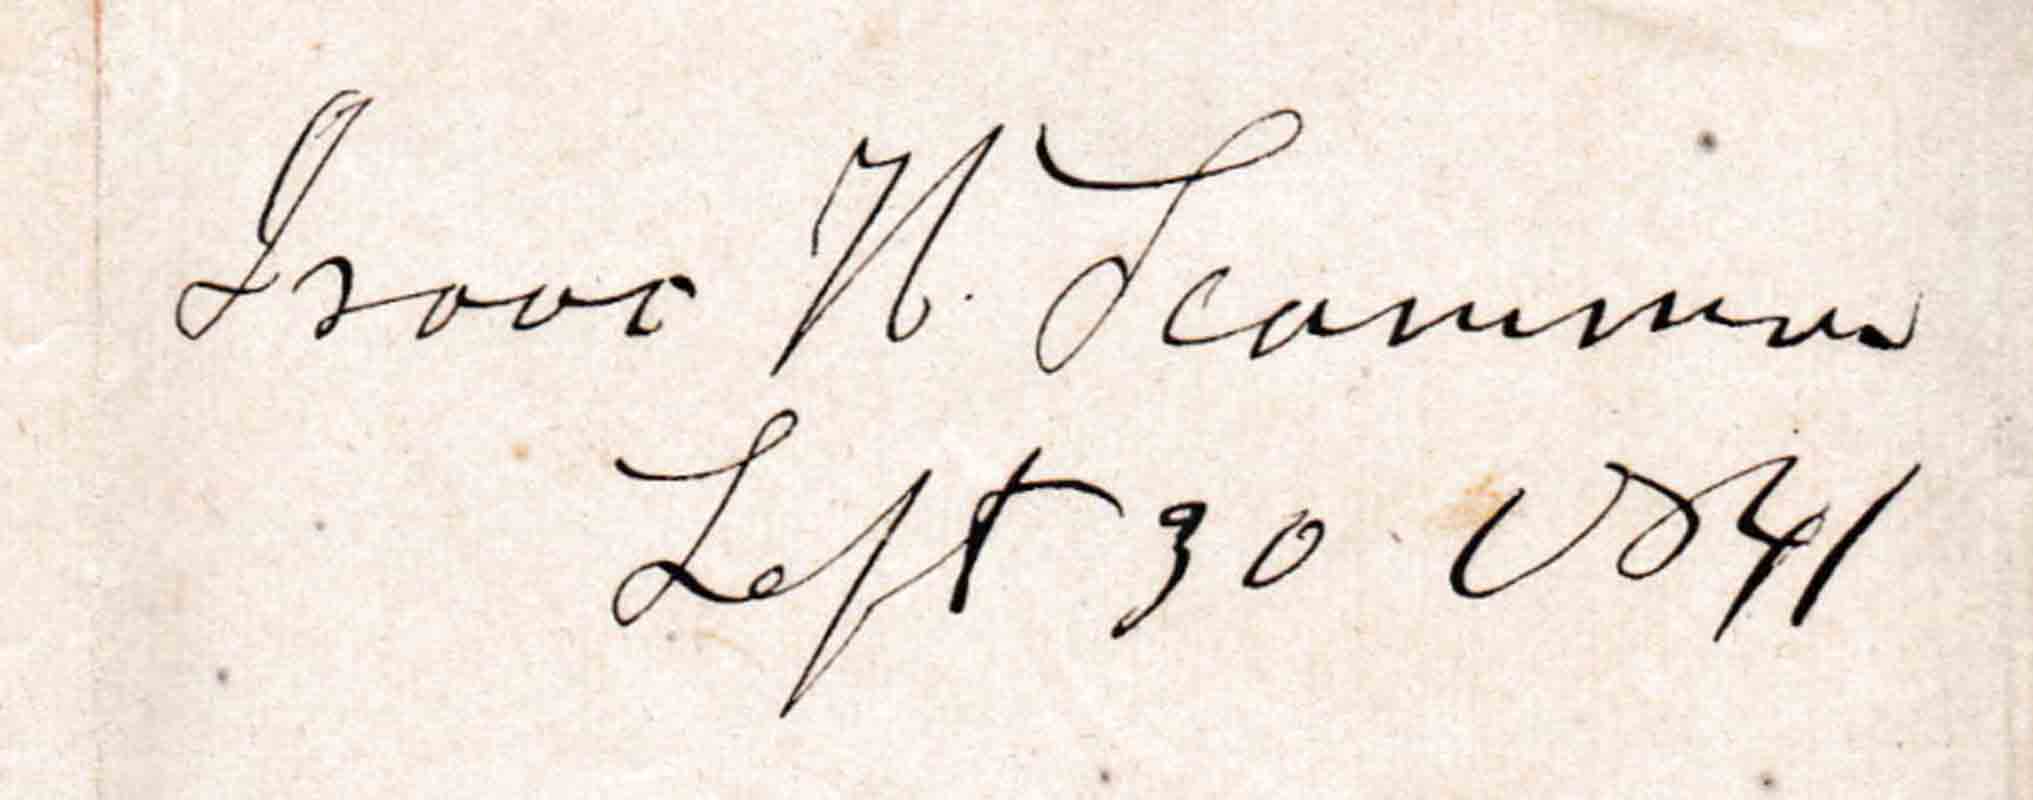 Isaac N. Scammon
Sept 30 1841